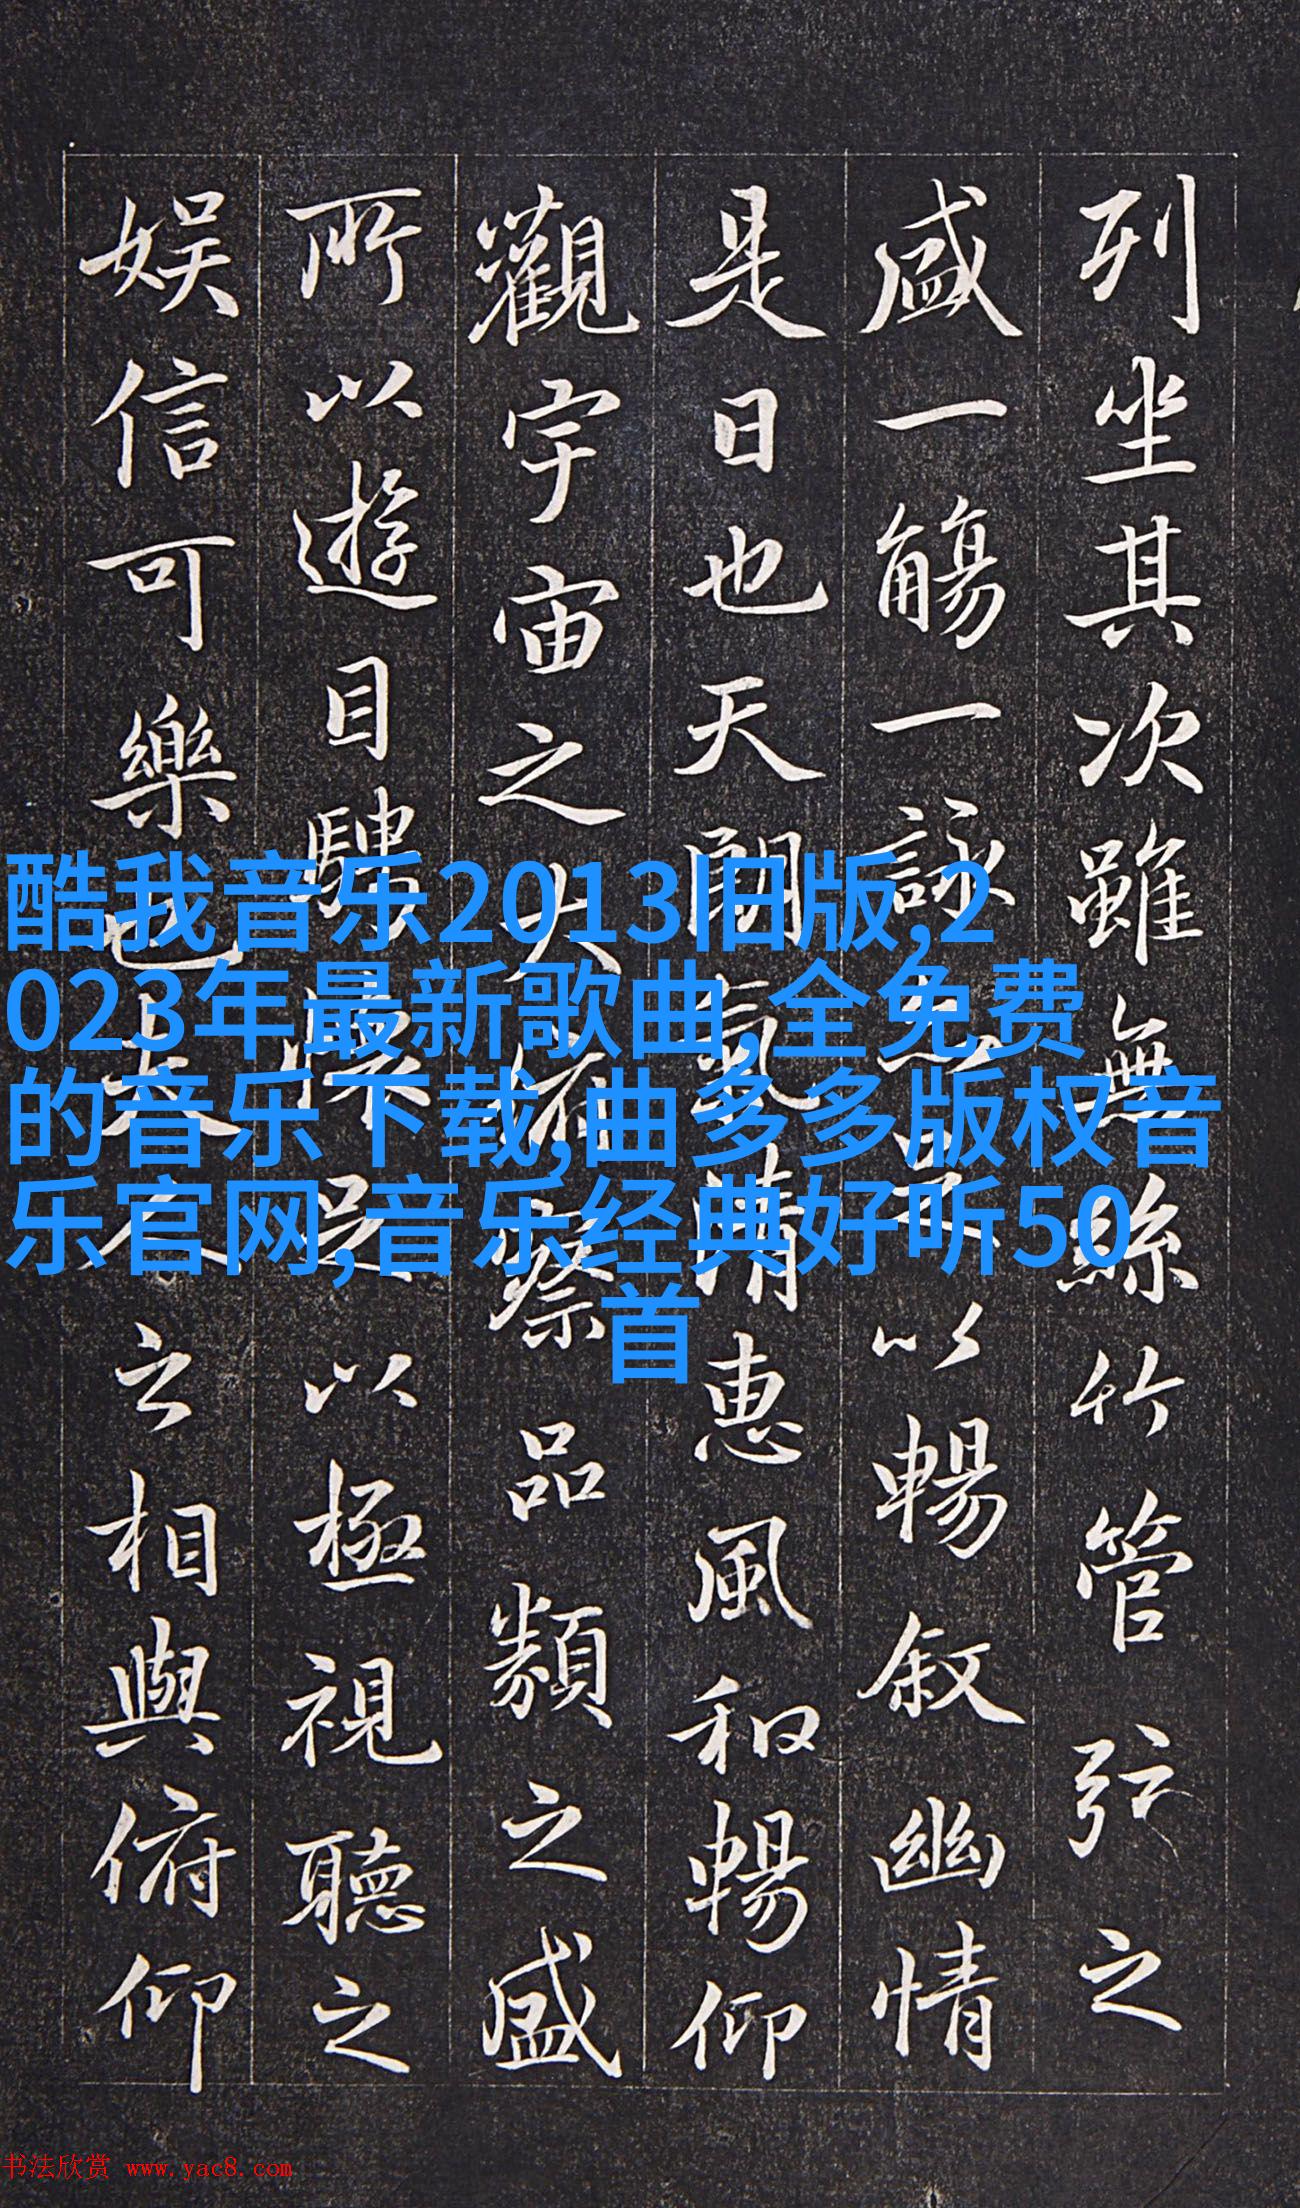 列坐其次雖無絲竹管弦之
盛一觴一詠亦足以暢敘幽情
是日也天朗氣清惠風和暢仰
觀宇宙之大俯察品類之盛
所以遊目騁懷足以極視聽之
娛信可樂也夫人之相與俯仰
酷我音乐2013旧版,2
023年最新歌曲,全免费
的音乐下载,曲多多版权音
乐官网,音乐经典好听50
首
书法欣赏 www.yac8.com